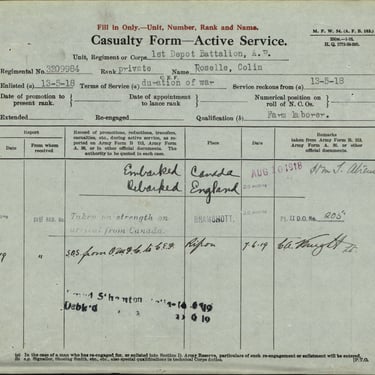 Fill in Only.—Unit, Number, Rank and Name.
M. F. W. 54. (A. F. B. 103.)
Casualty Form—Active Service.
Unit, Regiment or Corps 1st Depot Battalion,
Regimental No. 3309984 Rank private Name Roselle, Colin
C.E.F.
Enlisted 13-5-18 Terms of Service duration of war Service reckons from 13-5-18
Date of promotion to present rank. Date of appointment to lance rank Numerical position on roll of N.C.Os.
Extended Re-engaged Qualification Farm laborer.
Report
Date From whom received
Record of promotions, reductions, transfers, casualties, etc., during active service, as reported on Army Form B. 213, Army Form A. 36, or in other official documents. The authority to be quoted in each case.
Place
Date
Remarks
taken from Army Form B. 213, Army Form A. 36, or other official documents.
Embarked Canada AUG 1918
Debarked England
Taken on strength on arrival from Canada. BRAMSHOTT. Pt. II D.O. No. 205
S.O.S. from to C.E.F. Ripon 7-6-19
(a) In the case of a man who has re-engaged for, or enlisted into Section D. Army Reserve, particulars of such re-engagement or enlistment will be entered.
(b) e.g. Signaller, Shoeing Smith, etc., etc., also special qualifications in technical Corps duties. [P.T.O.